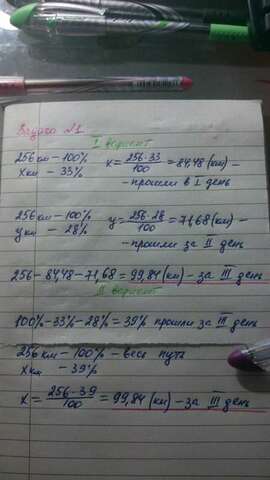 Задача №1
I вариант
256 км - 100% x = 256·33/100 = 84,48 (км) -
x км - 33% - прошли в I день
256 км - 100% y = 256·28/100 = 71,68 (км) -
y км - 28% - прошли за II день
256 - 84,48 - 71,68 = 99,84 (км) - за III день
II вариант
100% - 33% - 28% = 39% прошли за III день
256 км - 100% - весь путь
x км - 39%
x = 256·39/100 = 99,84 (км) - за III день